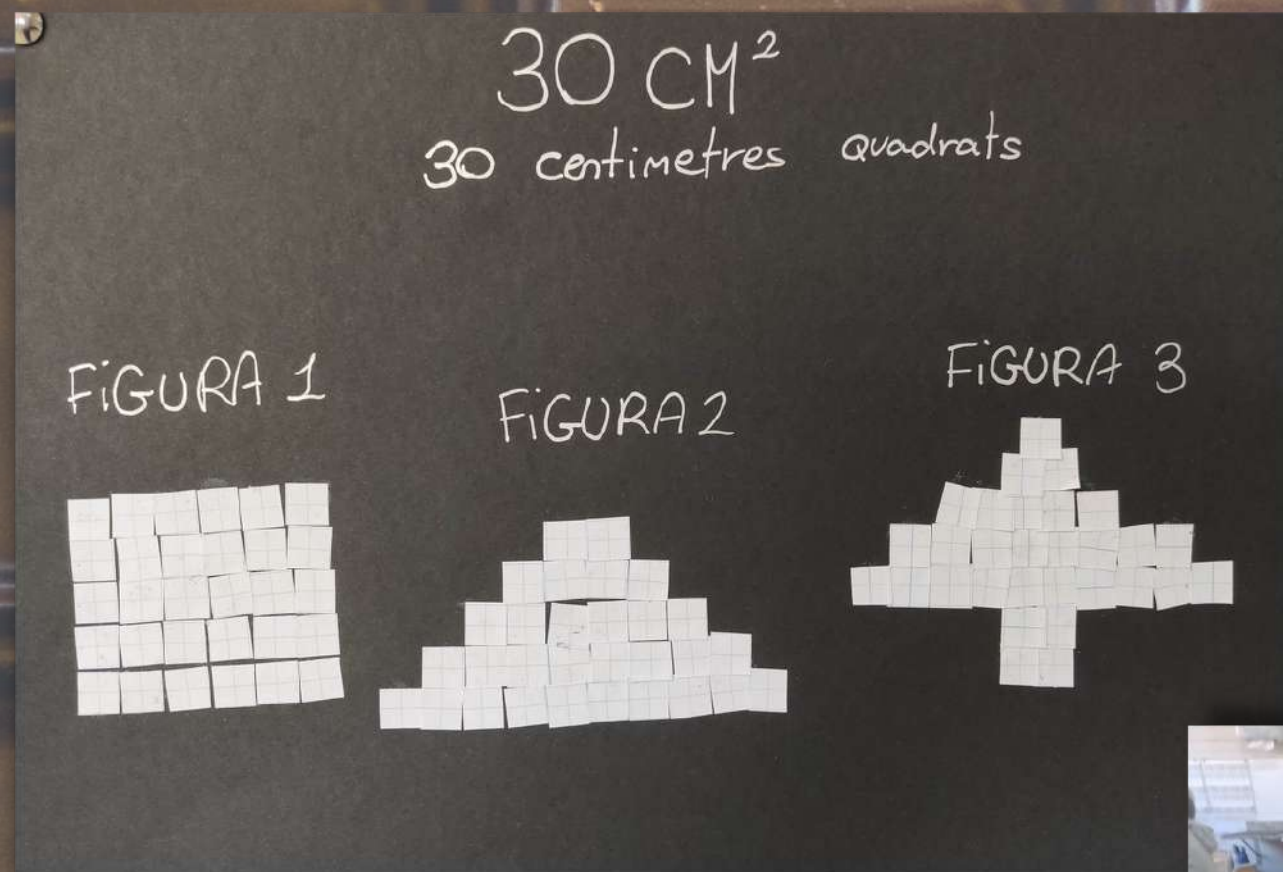 30 CM²
30 centimetres quadrats
FiGURA 1
FiGURA 2
FiGURA 3